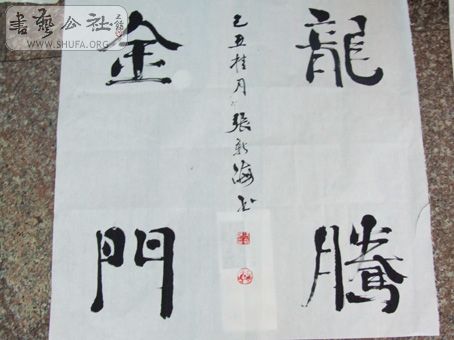 龍騰
己丑桂月張新海书
金門
書藝公社
WWW.SHUFA.ORG